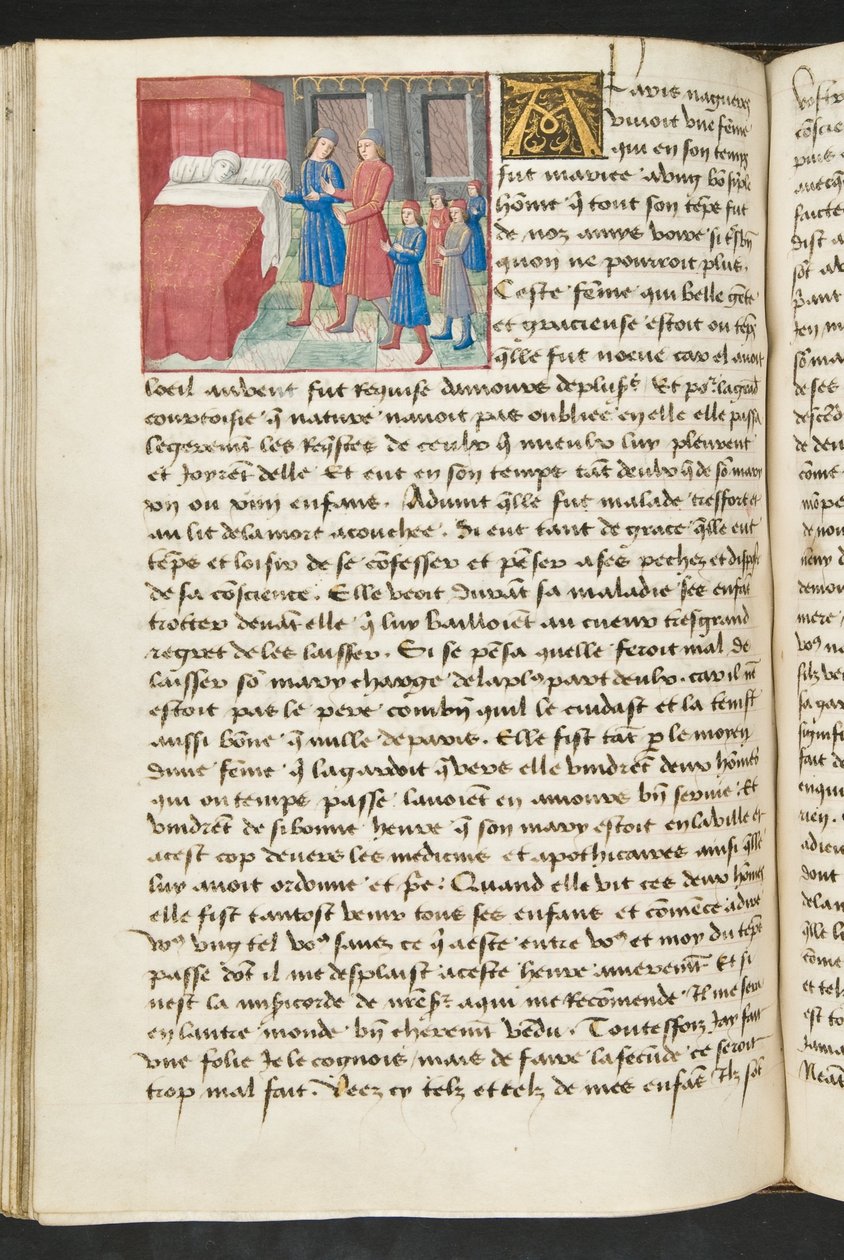 A Paris nagueres
vivoit vne fēme
qui en son temps
fut mariee a vng bō simple
hōme q̄ tout son tēps fut
de noz amys voire si t̄sbn̄
quon ne pourroit plus.
Ceste fēme qui belle gēte
et gracieuse estoit ou tēps
q̄lle fut neufue car el auoit
loeil au vent fut requise damours de plus̄rs Et por la grād
courtoisie q̄ nature nauoit pas oubliee en elle elle passa
legeremt les reqstes de ceulx q̄ mieulx luy pleurent
et joyrēt delle Et eut en son temps tāt deulx q̄ de sō mary
xij ou xiiij enfans. Aduint q̄lle fut malade tresfort et
au lit de la mort acouchee. Si eut tant de grace q̄lle eut
tēps et loisir de se cōfesser et pēser a ses pechez et disposer
de sa cōscience. Elle veoit durāt sa maladie ses enfās
trotter deuāt elle q̄ luy bailloiēt au cueur tresgrand
regret de les laisser. Si se pēsa quelle feroit mal de
laisser sō mary charge de la pl9 part deulx. car il nē
estoit pas le pere combn̄ quil le cuidast et la tenist
aussi bōne q̄ nulle de paris. Elle fist tāt p̄ le moyen
dune fēme q̄ la gardoit q̄ vers elle vindrēt deux hōmes
qui ou temps passe lauoiēt en amours bn̄ seruie. Et
vindrēt de si bonne heure q̄ son mary estoit en la ville et
a cest cop deuers les medicins et apothicaires ainsi q̄lle
luy auoit ordonne et prie. Quand elle vit ces deux hōmes
elle fist tantost venir tous ses enfans et cōmēce a dire
Vo9 vng tel vo9 sauez ce q̄ a este entre vo9 et moy du tēps
passe dōt il me desplaist a ceste heure ameremt Et si
nest la misicorde de nr̄e sr̄ a qui me recōmende Il me sera
en lautre monde bn̄ cheremt vēdu. Toutesfoiz jay fait
vne folie je le cognois mais de faire la secūde ce seroit
trop mal fait. Veez cy telz et telz de mes enfās Ilz sōt